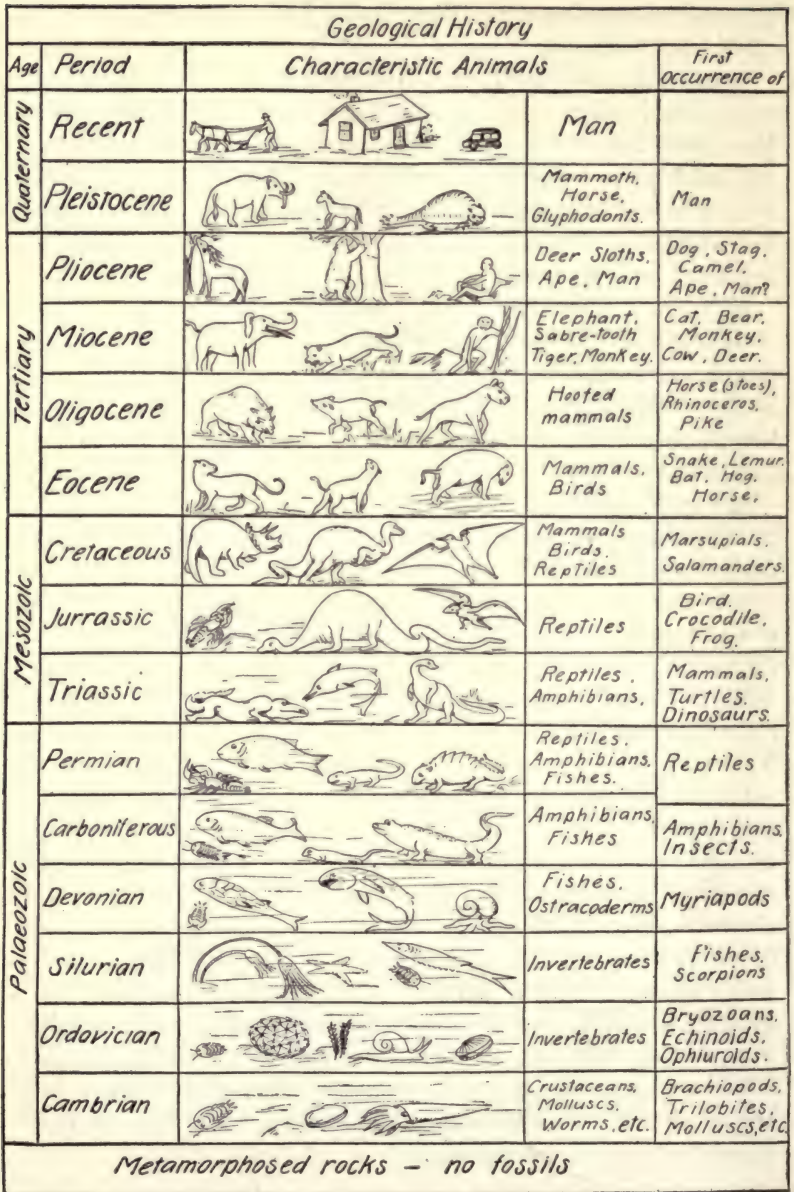 Geological History
Age Period Characteristic Animals First occurrence of
Quaternary
Recent Man
Pleistocene Mammoth, Horse, Glyphodonts. Man
Tertiary
Pliocene Deer Sloths, Ape, Man Dog, Stag, Camel, Ape, Man?
Miocene Elephant, Sabre-tooth Tiger, Monkey. Cat, Bear, Monkey, Cow, Deer.
Oligocene Hoofed mammals Horse (3 toes), Rhinoceros, Pike
Eocene Mammals, Birds Snake, Lemur, Bat, Hog, Horse,
Mesozoic
Cretaceous Mammals Birds. Reptiles Marsupials. Salamanders.
Jurrassic Reptiles Bird. Crocodile, Frog.
Triassic Reptiles, Amphibians, Mammals, Turtles. Dinosaurs.
Palaeozoic
Permian Reptiles, Amphibians, Fishes. Reptiles
Carboniferous Amphibians, Fishes Amphibians, Insects.
Devonian Fishes, Ostracoderms Myriapods
Silurian Invertebrates Fishes, Scorpions
Ordovician Invertebrates Bryozoans, Echinoids, Ophiuroids.
Cambrian Crustaceans, Molluscs, Worms, etc. Brachiopods, Trilobites, Molluscs, etc.
Metamorphosed rocks - no fossils